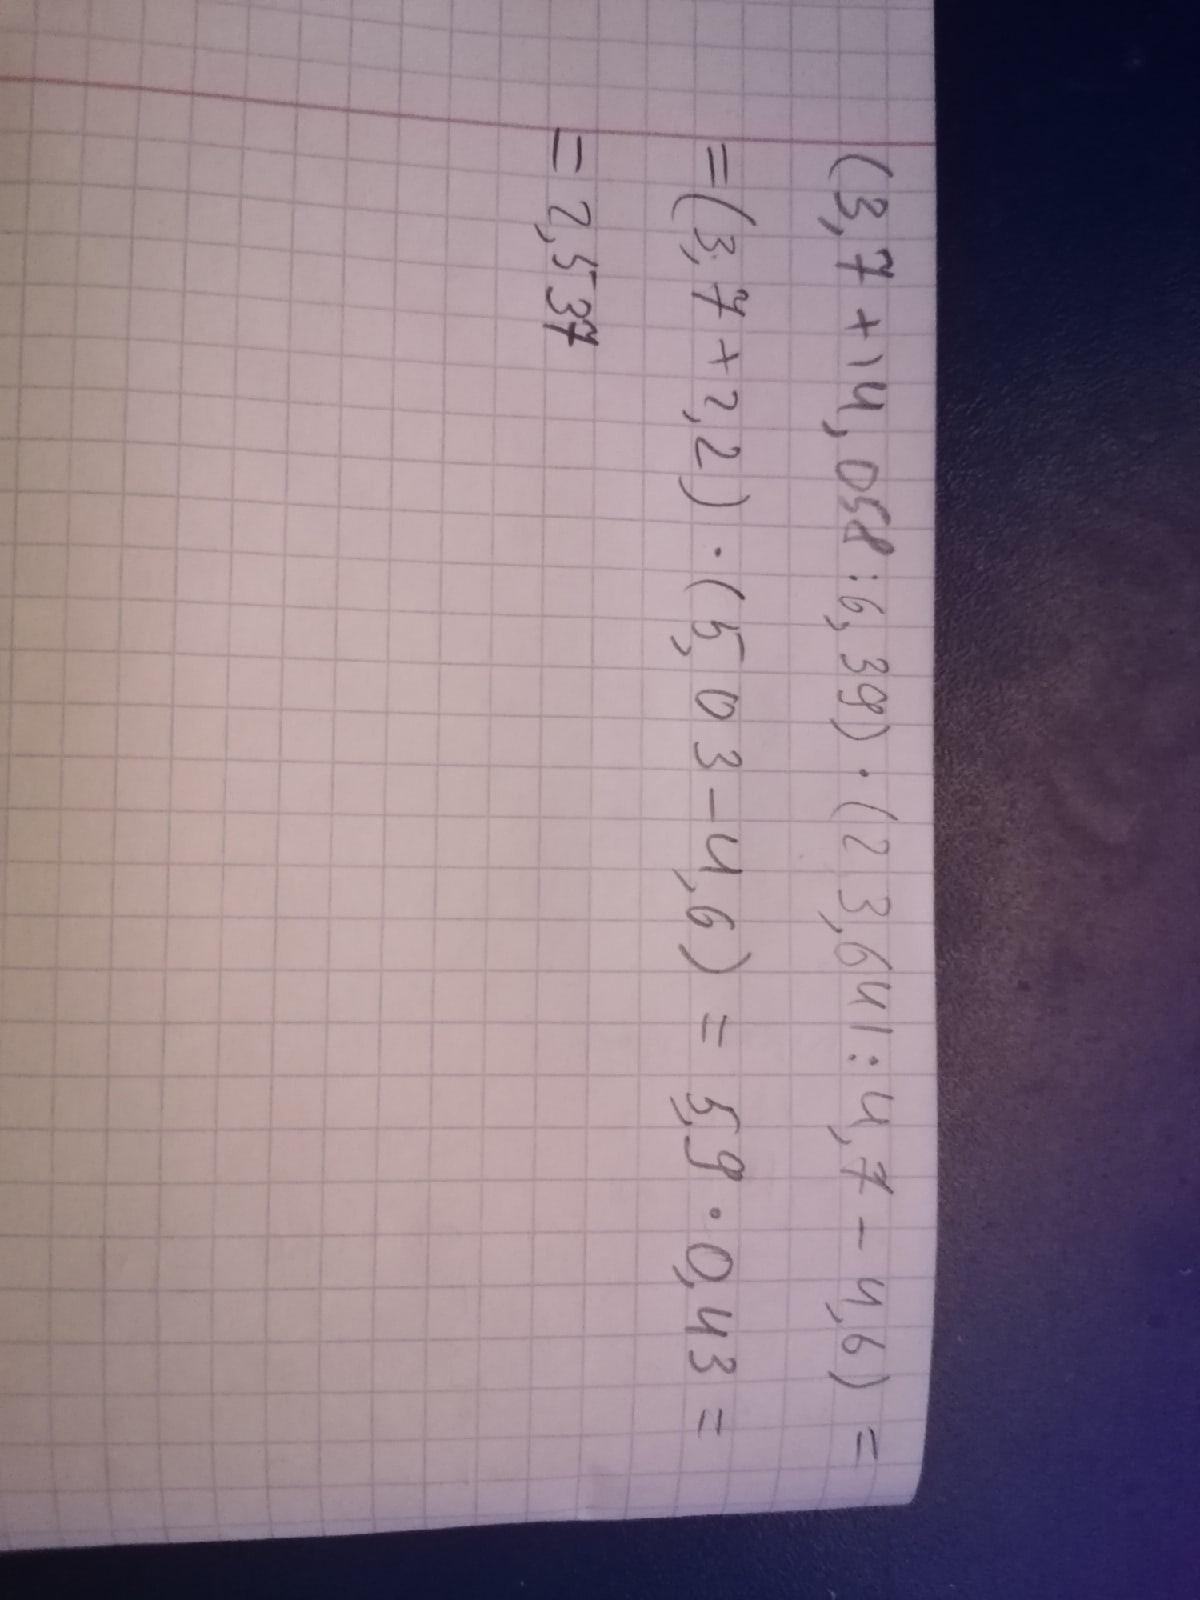 (3,7+14,058:6,39)·(23,641:4,7-4,6)=
=(3,7+2,2)·(5,03-4,6)=5,9·0,43=
=2,537